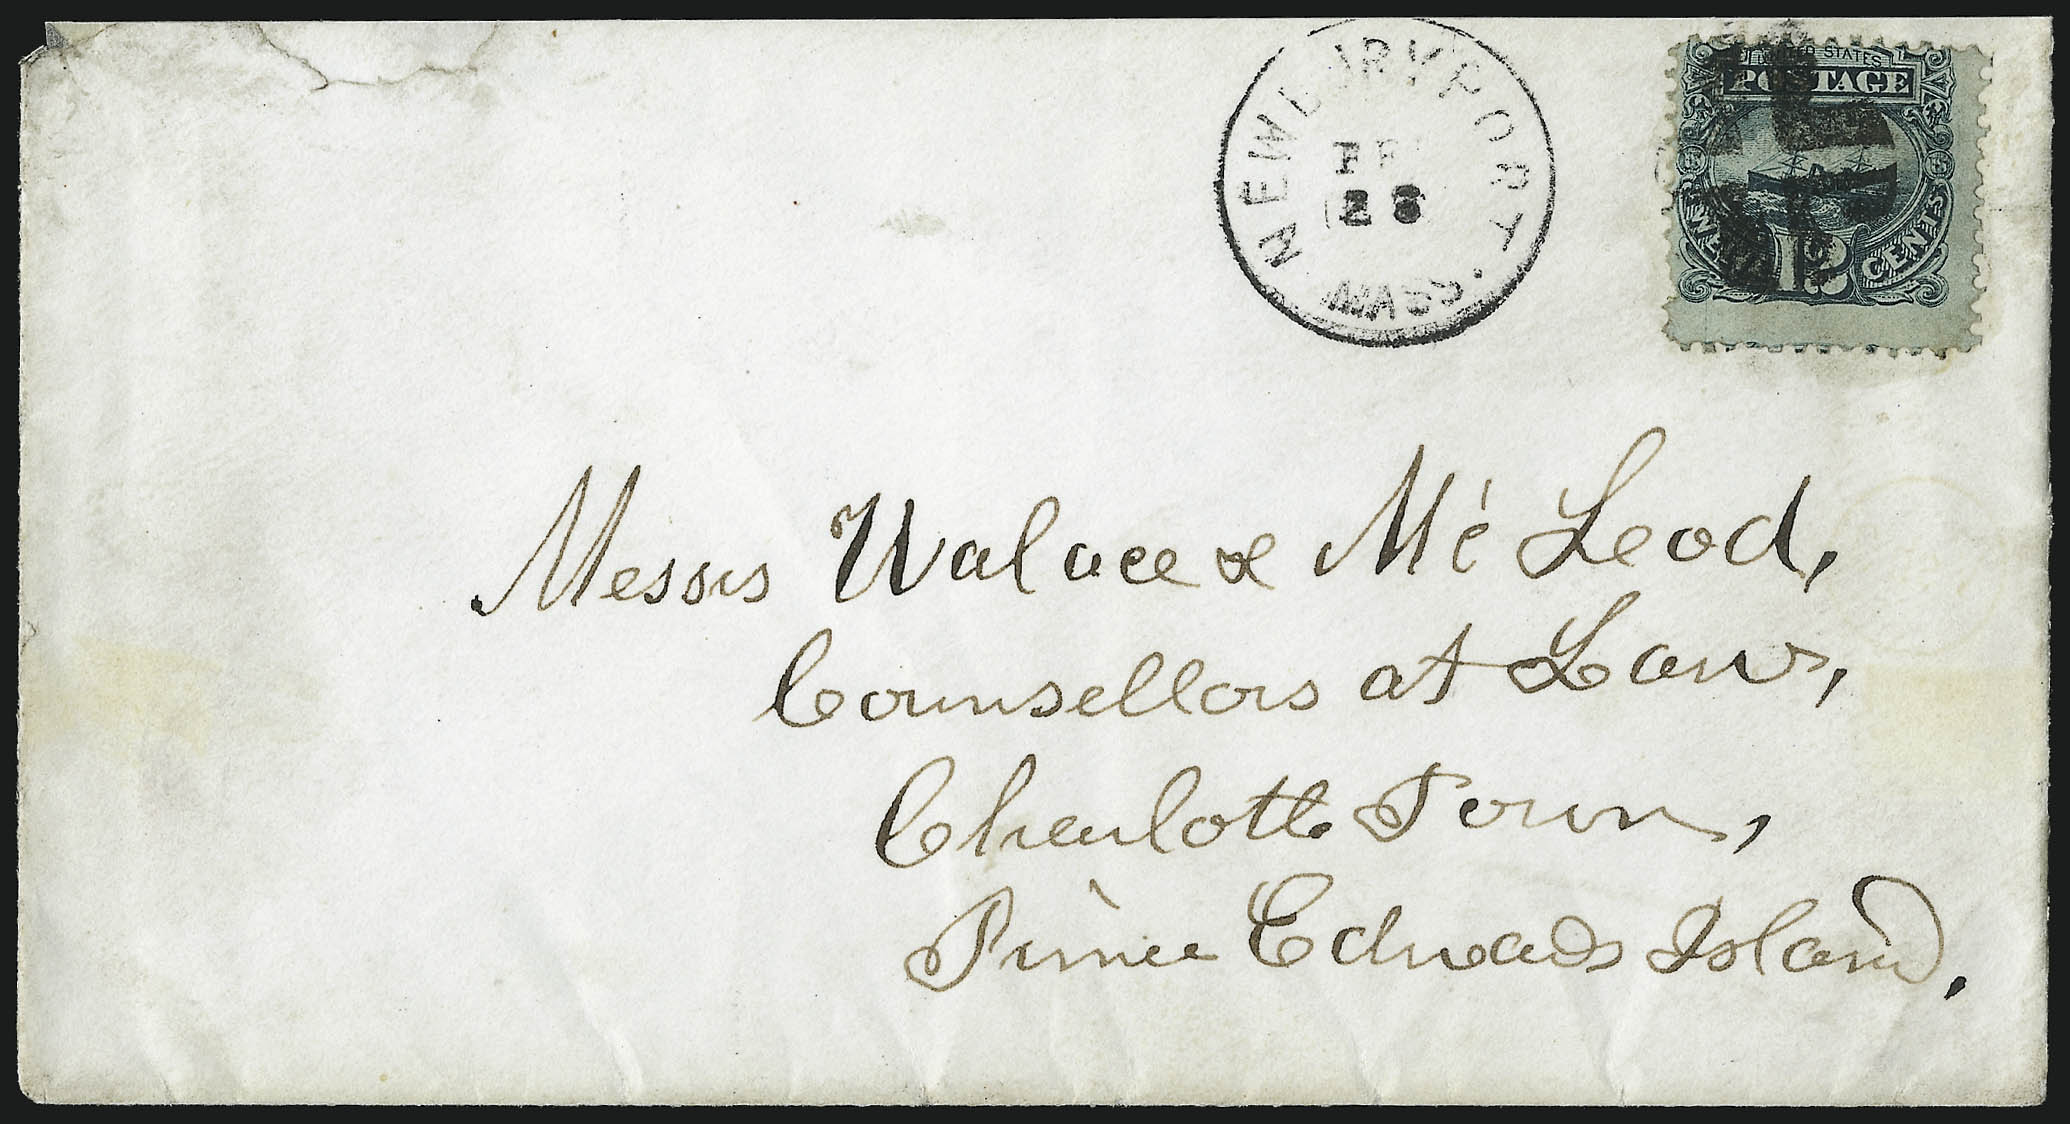 NEWBURYPORT.
FEB
28
MASS.
UNITED STATES
POSTAGE
12
CENTS
Messrs Walace & Mc Leod,
Counsellors at Law,
Charlotte Town,
Prince Edwards Island,